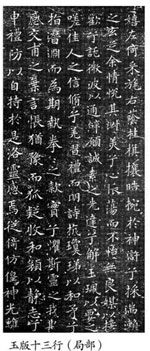 嬉左倚采旄右蔭桂旗攘皓腕於神滸兮採湍瀨
之玄芝余情悅其淑美兮心振蕩而不怡無良媒以接
歡兮託微波以通辭願誠素之先達兮解玉珮以要之
嗟佳人之信脩兮羌習禮而明詩抗瓊珶以和予兮
指潛淵而為期執拳拳之款實兮懼斯靈之我欺
感交甫之棄言悵猶豫而狐疑收和顏以靜志兮
申禮防以自持於是洛靈感焉徙倚仿偟神光
玉版十三行（局部）